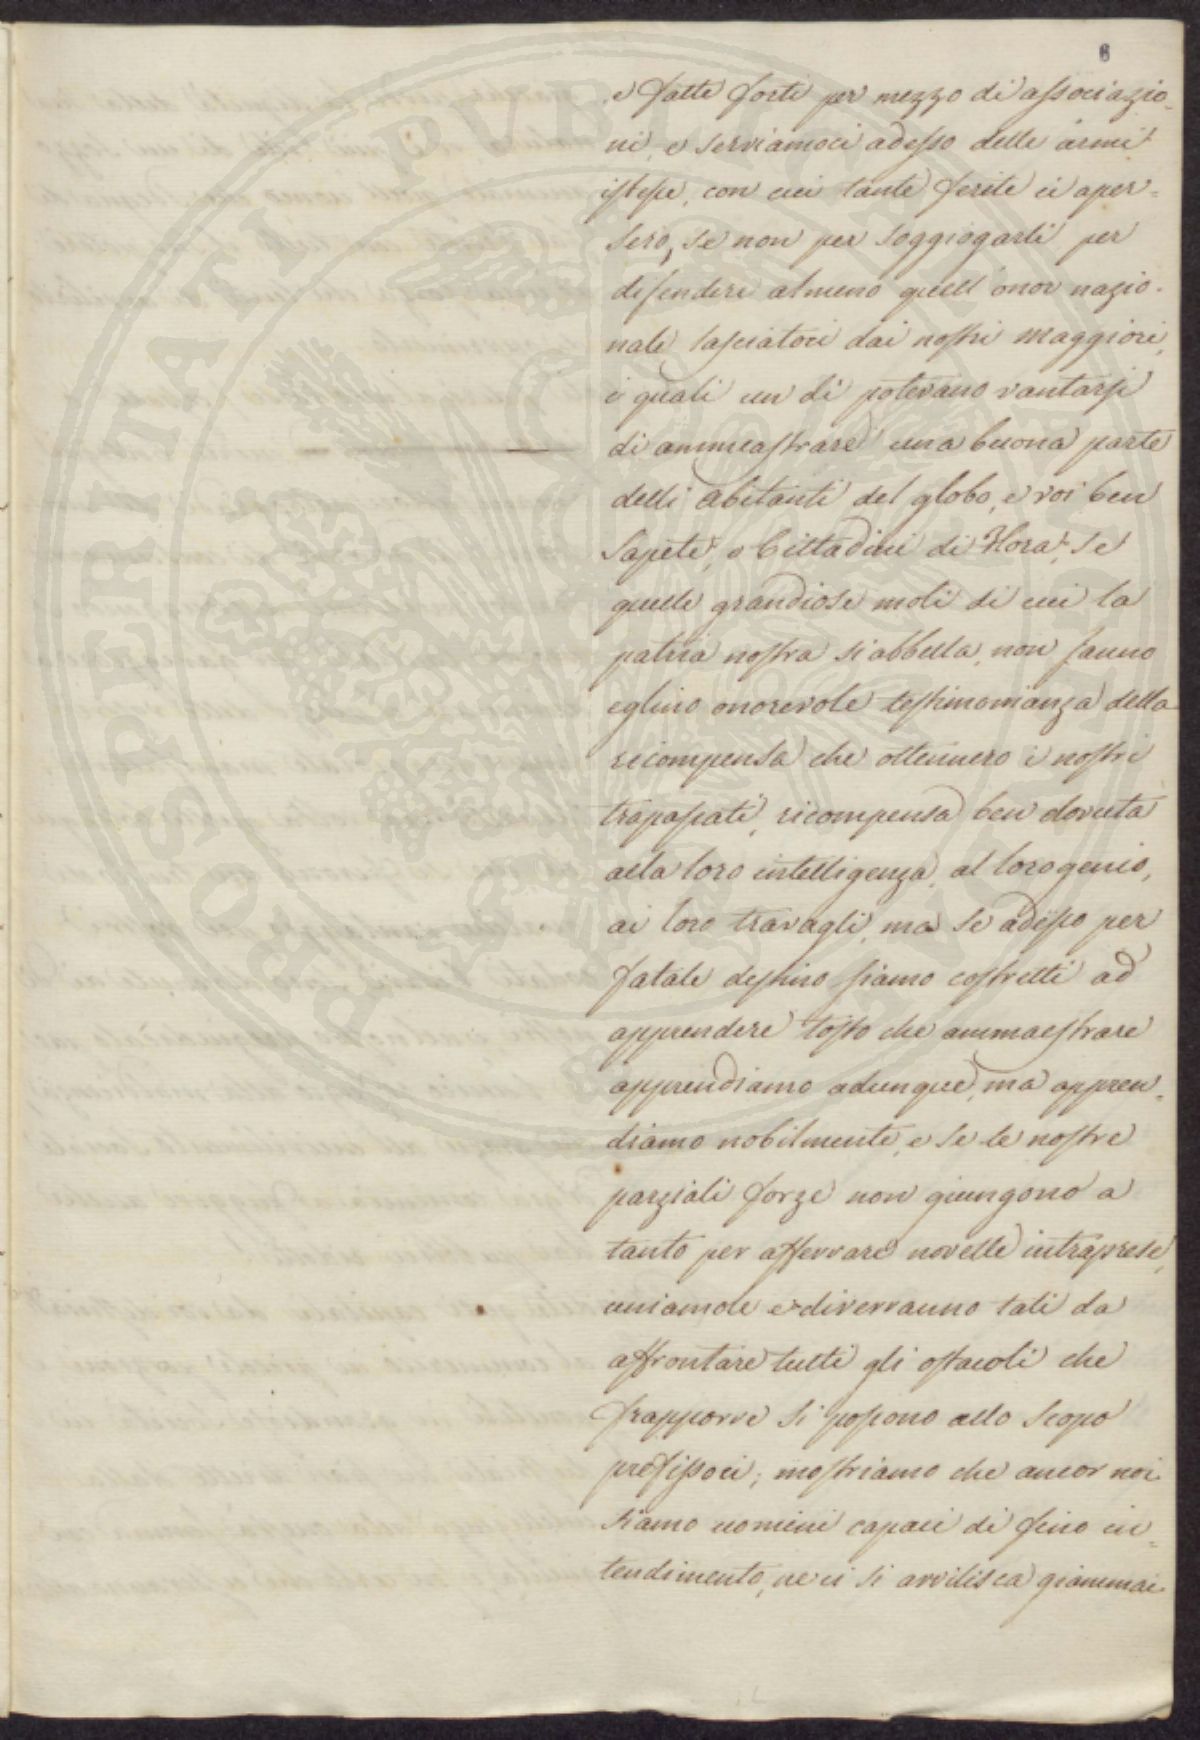 6
e fatte forti per mezzo di associazio-
ni, e serviamoci adesso delle armi
istesse, con cui tante ferite ci aper-
sero, se non per soggiogarli per
difendere almeno quell'onor nazio-
nale, lasciatoci dai nostri maggiori,
i quali un dì potevano vantarsi
di ammeastrare una buona parte
delli abitanti del globo, e voi ben
sapete, o Cittadini di Flora, se
quelle grandiose moli di cui la
patria nostra si abbella, non fanno
eglino onorevole testimonianza della
ricompensa che ottennero i nostri
trapassati, ricompensa ben dovuta
alla loro intelligenza, al loro genio,
ai loro travagli, ma se adesso per
fatale destino siamo costretti ad
apprendere tosto che ammaestrare
apprendiamo adunque, ma appren-
diamo nobilmente, e se le nostre
parziali forze non giungono a
tanto per afferrare novelle intraprese,
uniamole e diverranno tali da
affrontare tutti gli ostacoli che
frapporre si possono allo scopo
prefissoci; mostriamo che ancor noi
siamo uomini capaci di fino in-
tendimento, ne ci si avvilisca giammai
PROSPERITATI PUBLICAE